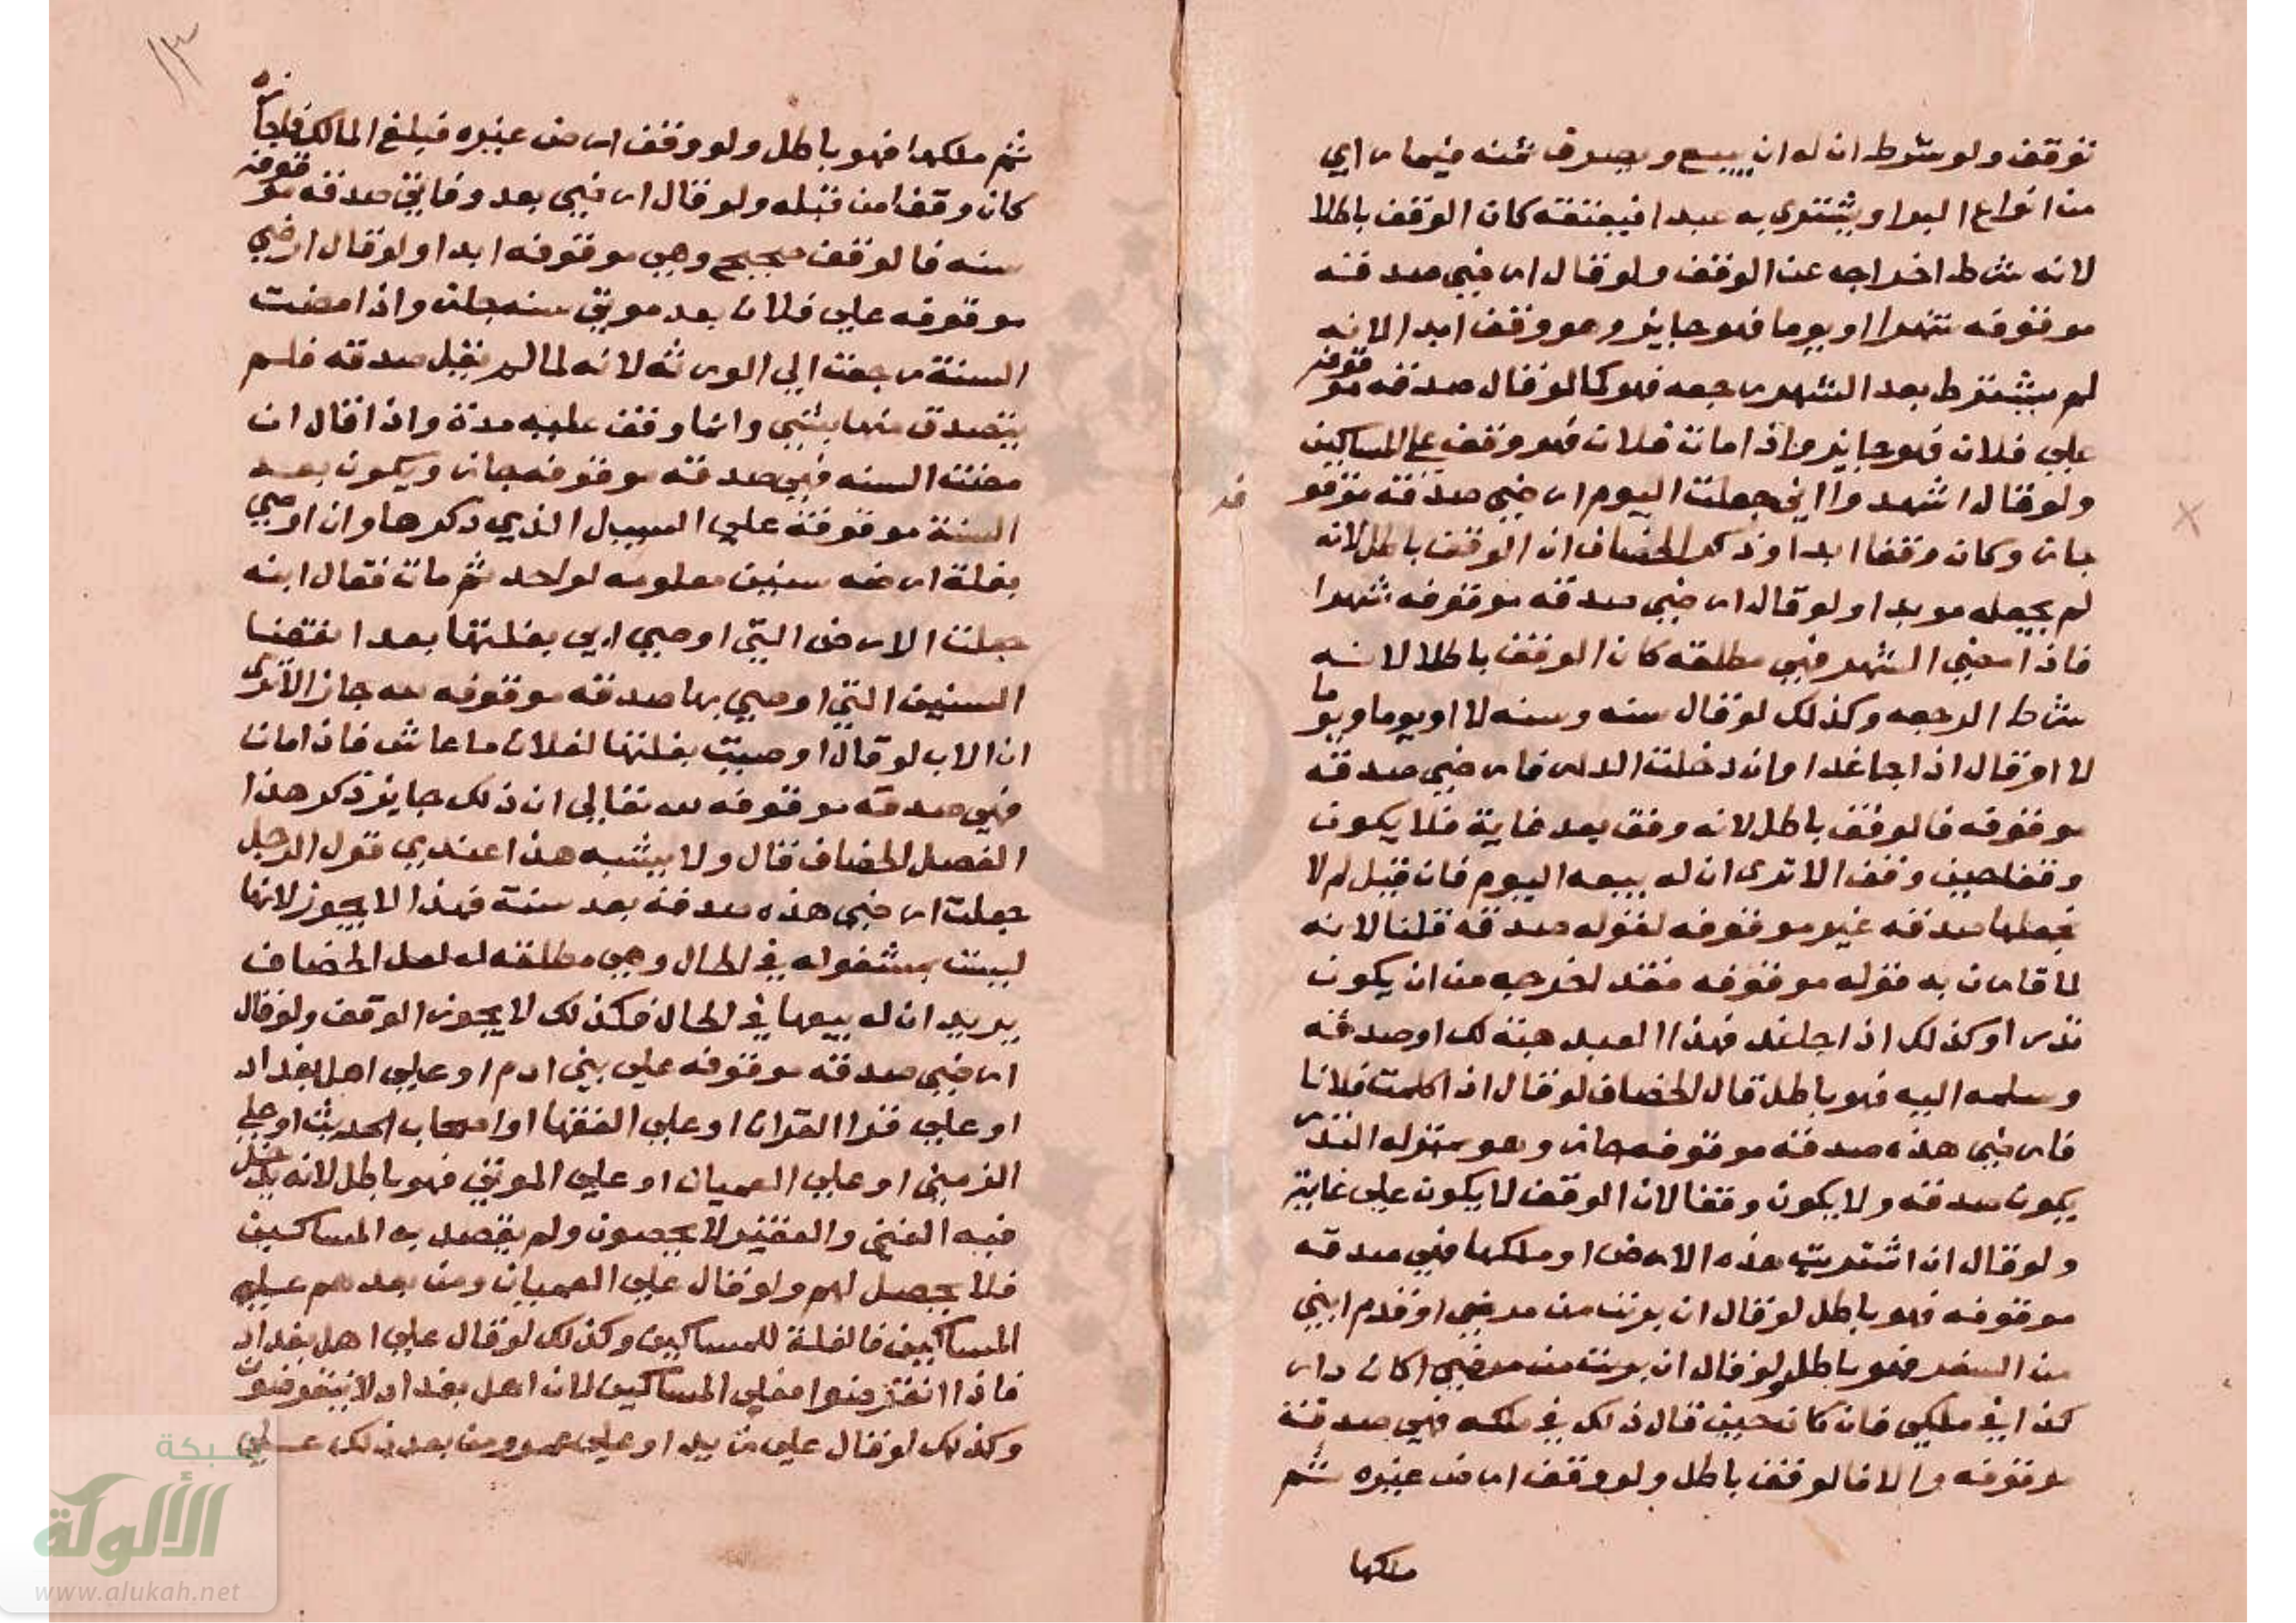 توقف ولو شرط ان له ان يبيع ويصرف ثمنه فيما راي
من انواع البر او يشتري به عبدا فيعتقه كان الوقف باطلا
لانه شرط اخراجه عن الوقف ولو قال ارضي صدقة
موقوفه شهرا او يوما فهو جايز وهو وقف ابدا لانه
لم يشترط بعد الشهر رجعه فهو كما لو قال صدقه موقوفه
علي فلان فهو جايز واذا مات فلان فهو وقف علي المساكين
ولو قال اشهدوا اني جعلت اليوم ارضي صدقة موقو
جاز وكان وقفا ابدا وذكر الخصاف ان الوقف باطل لانه
لم يجعله موبدا ولو قال ارضي صدقه موقوفه شهرا
فاذا مضي الشهر فهي مطلقه كان الوقف باطلا لانه
شرط الرجعه وكذلك لو قال سنه وسنه لا او يوما ويوما
لا او قال اذا جا غدا وان دخلت الدار فارضي صدقه
موقوفه فالوقف باطل لانه وقف بعد غاية فلا يكون
وقفا حين وقف الا تري ان له بيعه اليوم فان قيل لم لا
فجعلها صدقه غير موقوفه لقوله صدقه قلنا لانه
لما قارن به قوله موقوفه فقد اخرجه من ان يكون
نذرا وكذلك اذا جا غد فهذا العبد هبة لك او صدقه
وسلمه اليه فهو باطل قال الخصاف لو قال اذا كلمت فلانا
فارضي هذه صدقه موقوفه جاز وهو بمنزله النذر
يكون صدقه ولا يكون وقفا لان الوقف لا يكون علي غاية
ولو قال ان اشتريت هذه الارض او ملكها فهي صدقه
موقوفه فهو باطل لو قال ان برئت من مرضي او قدم ابني
من السفر فهو باطل ولو قال ان برئت من مرضي اكان دار
كذا في ملكي فان كان حين قال ذلك في ملكه فهي صدقة
موقوفه والا فالوقف باطل ولو وقف ارض غيره ثم
ملكها
١٣
ثم ملكها فهو باطل ولو وقف ارض غيره فبلغ المالك فاجازه
كان وقفا من قبله ولو قال ارضي بعد وفاتي صدقه موقوفه
سنه فالوقف صحيح وهي موقوفه ابدا ولو قال ارضي
موقوفه علي فلان بعد موتي سنه جازت واذا مضت
السنة رجعت الي الورثه لانه لما لم يقل صدقه فلم
يتصدق منها بشي وانما وقف عليه مدة واذا قال ان
مضت السنه فهي صدقه موقوفه جاز ويكون بعد
السنة موقوفة علي السبيل الذي ذكرها وان اوصي
بغلة ارضه سنين معلومه لواحد ثم مات فقال ابنه
جعلت الارض التي اوصي ابي بغلتها بعد انقضا
السنين التي اوصي بها صدقه موقوفه لله جاز الا تري
ان الاب لو قال اوصيت بغلتها لفلان ما عاش فاذا مات
فهي صدقه موقوفه لله تعالي ان ذلك جايز ذكر هذا
الفصل الخصاف قال ولا يشبه هذا عندي قول الرجل
جعلت ارضي هذه صدقه بعد سنة فهذا لا يجوز لانها
ليست بمشغوله في الحال وهي مطلقه له لعل الخصاف
يريد ان له بيعها في الحال فكذلك لا يجوز الوقف ولو قال
ارضي صدقه موقوفه علي بني ادم او علي اهل بغداد
او علي قرا القران او علي الفقها او اصحاب الحديث او علي
الزمني او علي العميان او علي الموتي فهو باطل لانه يدخل
فيه الغني والفقير لا يحصون ولم يقصد به المساكين
فلا يحصل لهم ولو قال علي العميان ومن بعدهم علي
المساكين فالغلة للمساكين وكذلك لو قال علي اهل بغداد
فاذا انقرضوا فعلي المساكين لان اهل بغداد لا ينقرضون
وكذلك لو قال علي زيد او علي عمرو ومن بعد ذلك علي
شبكة
الألوكة
www.alukah.net